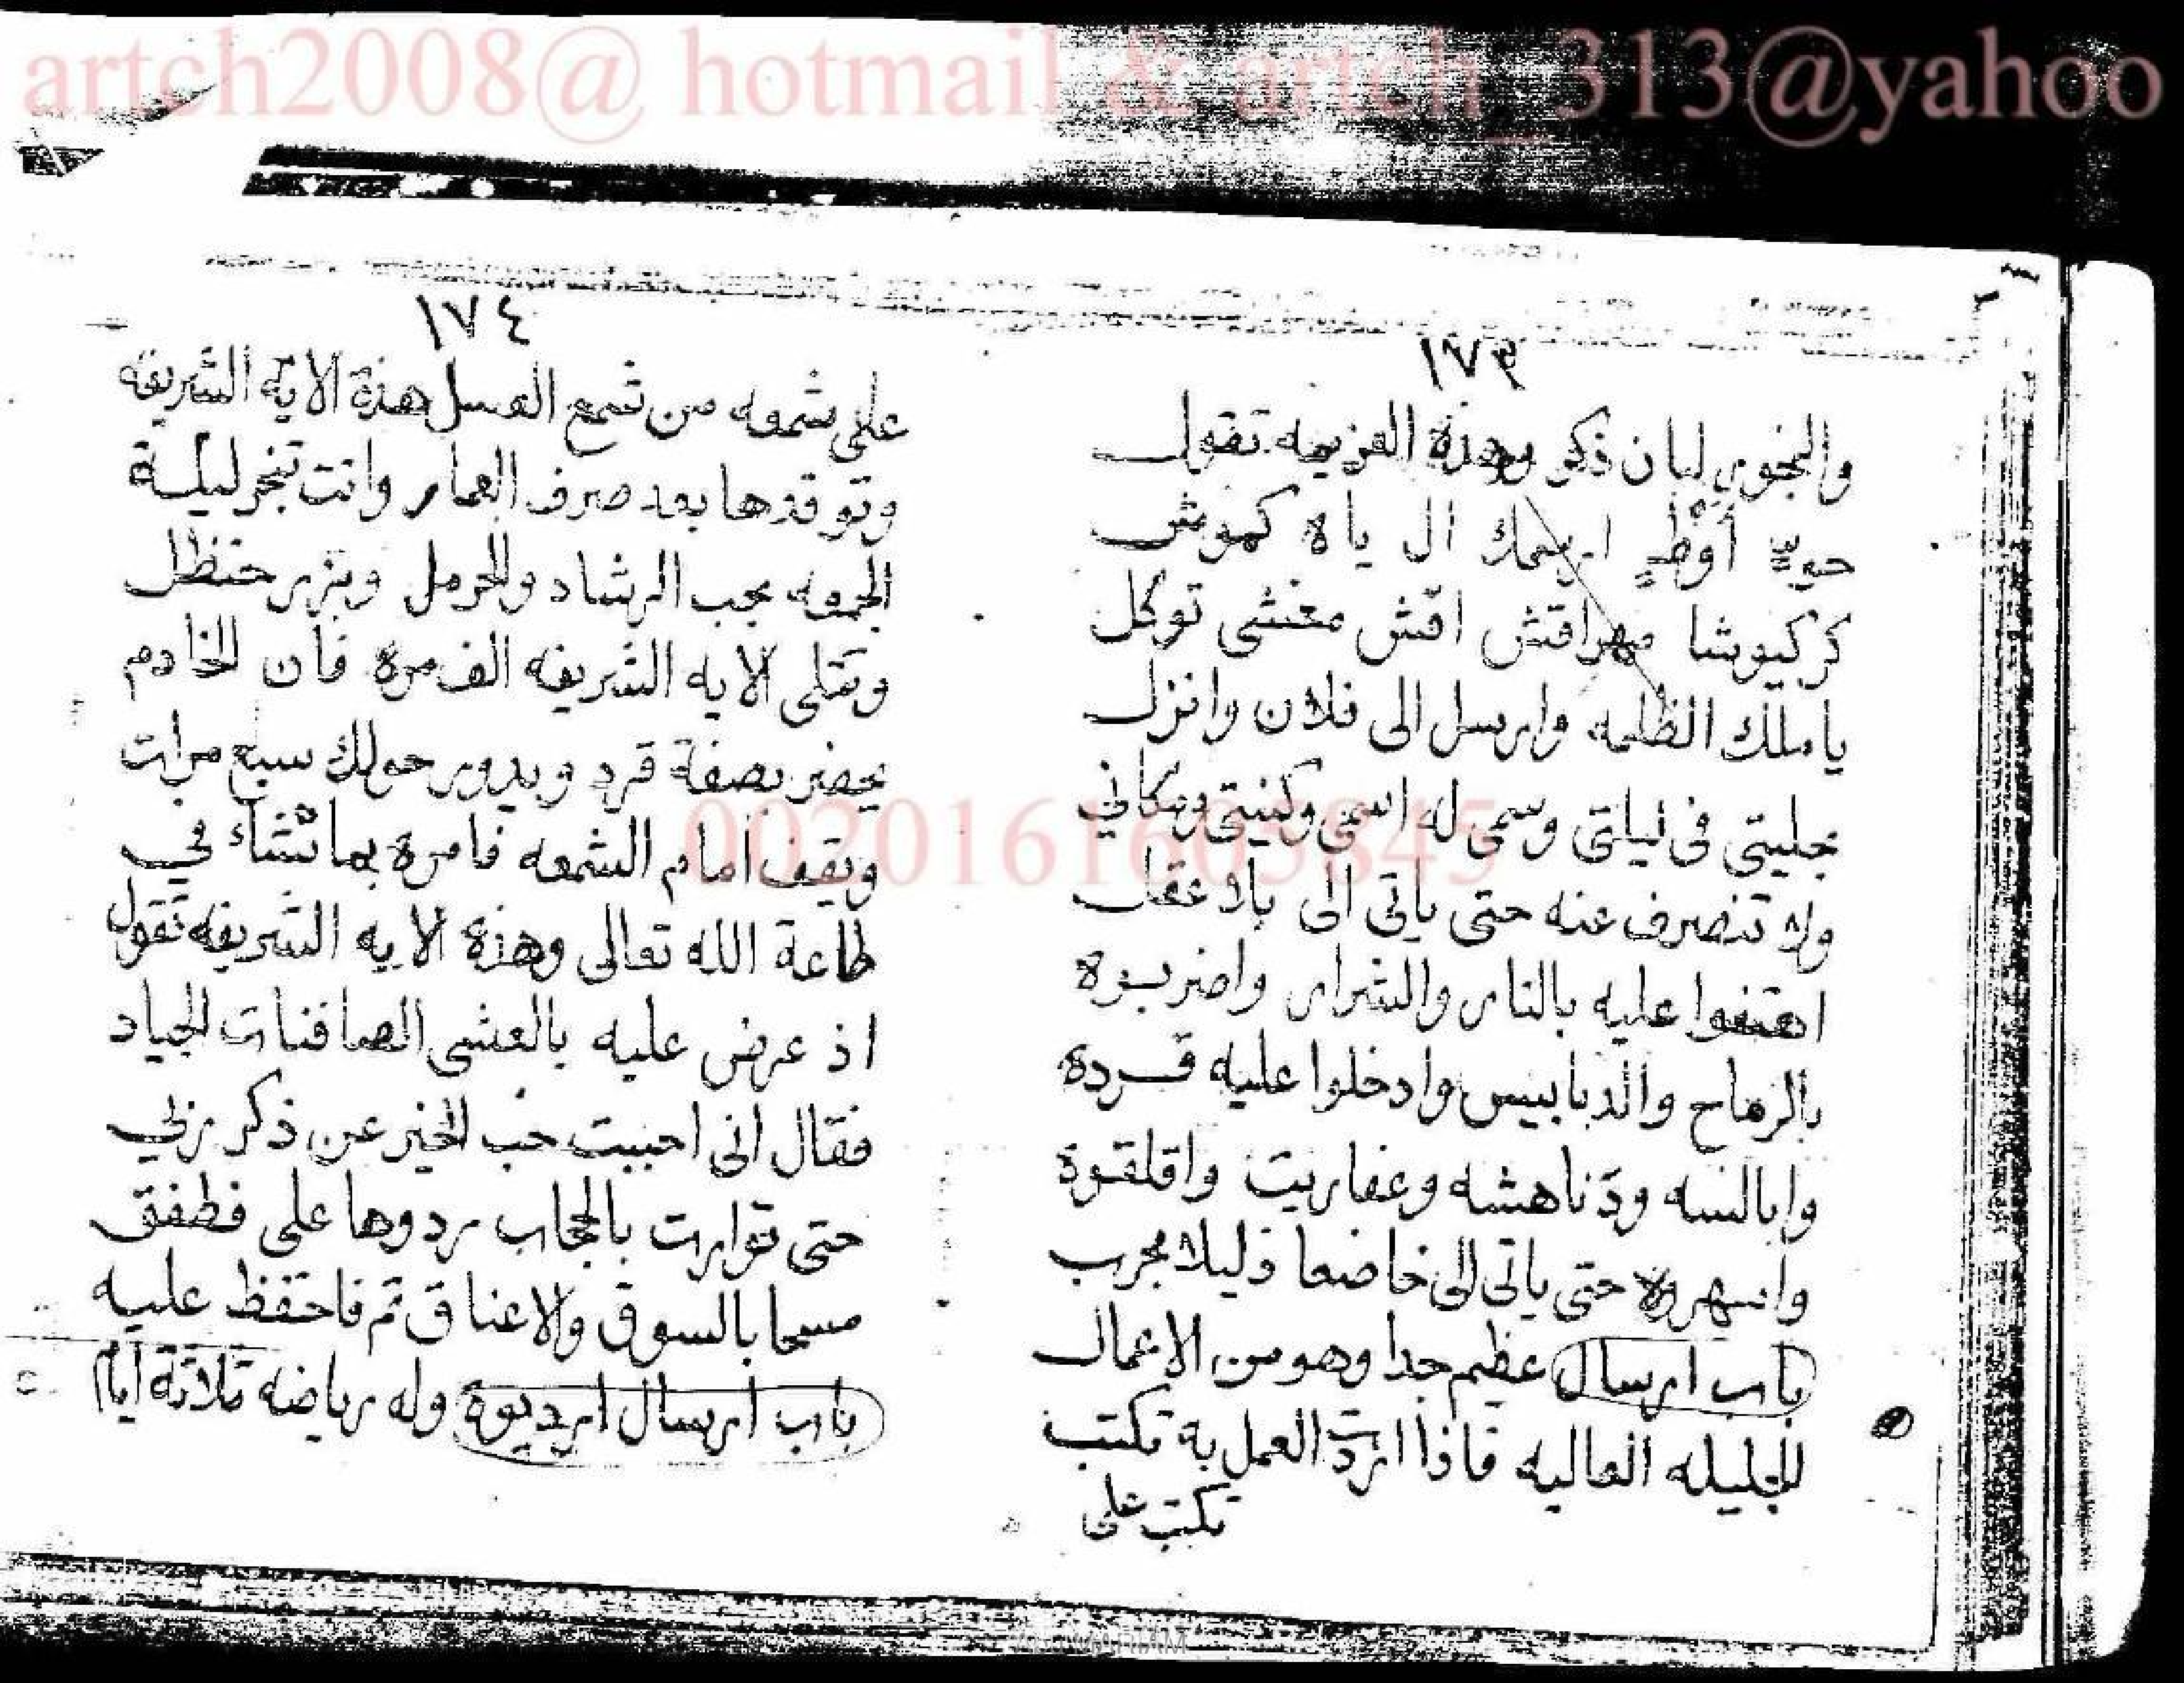 artch2008@ hotmail & artch_313@yahoo
١٧٣
والنجوى لبان ذكر وهذه العزيمه تقول
ارسمك ال ياه كموش
كركيوشا مهراقش اقش مغشى توكل
ياملك الظلمه وارسل الى فلان وانزل
بجلبتى فى ليلتى وسمى له اسمى وكنيتى ومكاني
ولا تنصرف عنه حتى ياتى الى بلا عقل
اهتفوا عليه بالنار والشرار واضربوه
بالرماح والدبابيس وادخلوا عليه قرده
وابالسه ودناهشه وعفاريت واقلقوه
واسهروه حتى ياتى الى خاضعا ذليلا مجرب
باب ارسال عظيم جدا وهو من الاعمال
الجليله العاليه فاذا اردت العمل به تكتب
تكتب على
١٧٤
على شمعه من شمع العسل هذه الايه الشريفه
وتوقدها بعد صرف العمار وانت تبخر ليلة
الجمعه بحب الرشاد والحرمل وبزر حنظل
وتتلى الايه الشريفه الف مرة فان الخادم
يحضر بصفة قرد ويدور حولك سبع مرات
ويقف امام الشمعه فامره بما تشاء في
طاعة الله تعالى وهذه الايه الشريفه تقول
اذ عرض عليه بالعشى الصافنات الجياد
فقال انى احببت حب الخير عن ذكر ربي
حتى توارت بالحجاب ردوها على فطفق
مسحا بالسوق والاعناق تم فاحتفظ عليه
باب ارسال ابرديوه وله رياضه ثلاثة ايام
0020161605845